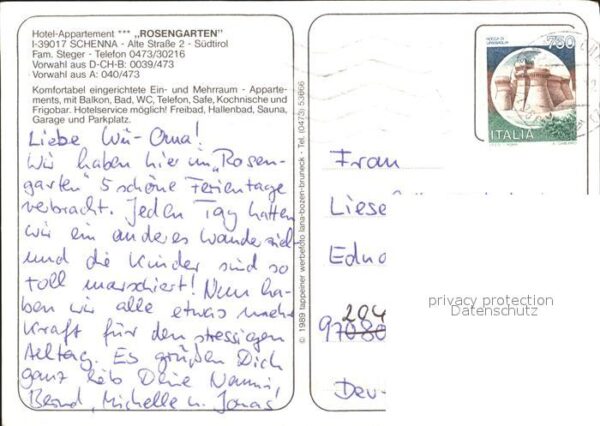 Hotel-Appartement *** „ROSENGARTEN"
I-39017 SCHENNA - Alte Straße 2 - Südtirol
Fam. Steger - Telefon 0473/30216
Vorwahl aus D-CH-B: 0039/473
Vorwahl aus A: 040/473
Komfortabel eingerichtete Ein- und Mehrraum - Apparte-
ments, mit Balkon, Bad, WC, Telefon, Safe, Kochnische und
Frigobar. Hotelservice möglich! Freibad, Hallenbad, Sauna,
Garage und Parkplatz.
Liebe Wü-Oma!
Wir haben hier im „Rosen-
garten" 5 schöne Ferientage
verbracht. Jeden Tag hatten
wir ein anderes Wanderziel
und die Kinder sind so
toll marschiert! Nun ha-
ben wir alle etwas mehr
Kraft für den stressigen
Alltag. Es grüßen Dich
ganz lieb Deine Nanni,
Bernd, Michelle u. Jonas
© 1989 tappeiner werbefoto lana-bozen-bruneck - Tel. (0473) 53666
750
ITALIA
Frau
Liese
Edno
204
97080
Deu-
privacy protection
Datenschutz